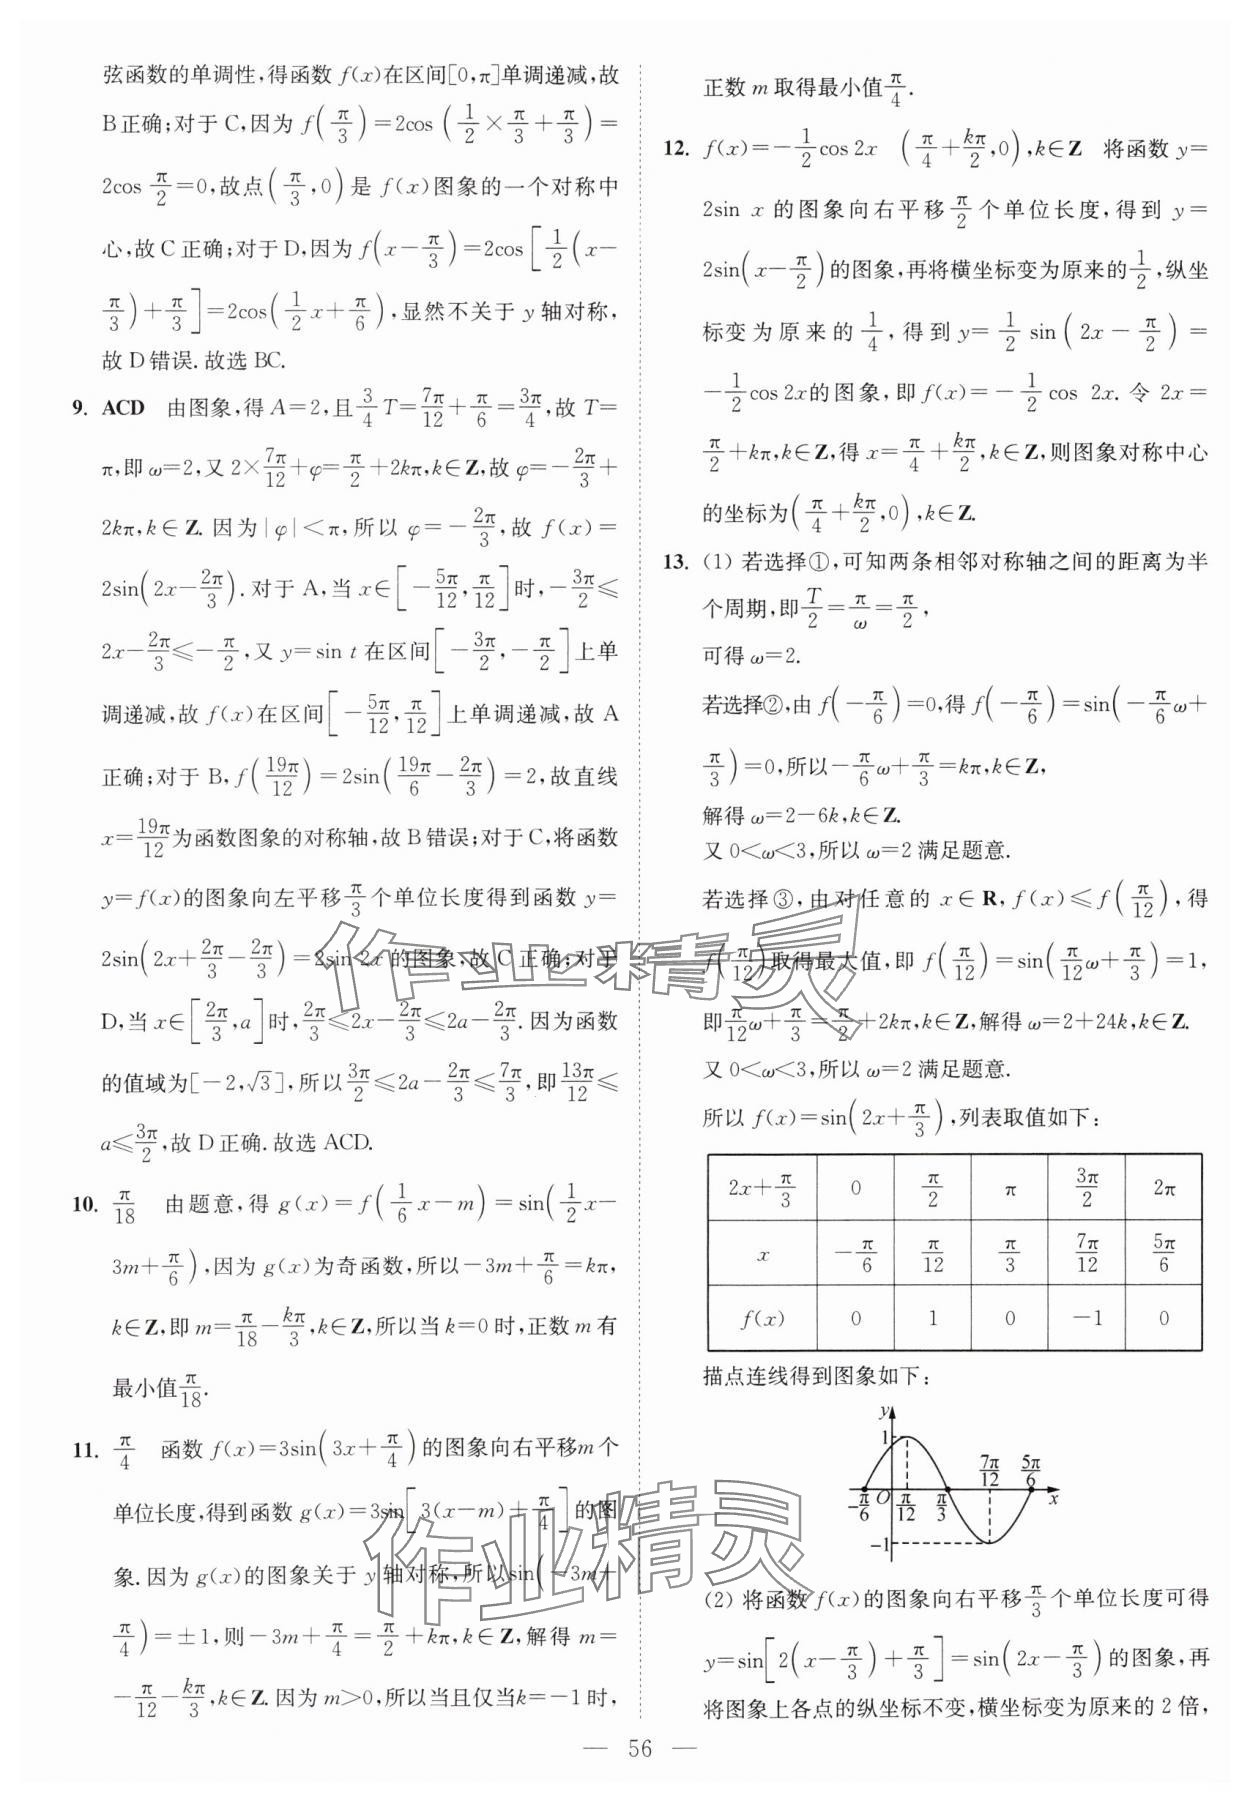 弦函数的单调性,得函数 f(x)在区间[0,π]单调递减,故
B正确;对于 C,因为 f(π/3)=2cos(1/2×π/3+π/3)=
2cos π/2=0,故点(π/3,0)是 f(x)图象的一个对称中
心,故 C 正确;对于 D,因为 f(x-π/3)=2cos[1/2(x-
π/3)+π/3]=2cos(1/2x+π/6),显然不关于 y 轴对称,
故 D 错误. 故选 BC.
9. ACD 由图象,得 A=2,且3/4T=7π/12+π/6=3π/4,故 T=
π,即 ω=2,又 2×7π/12+φ=π/2+2kπ,k∈Z,故 φ=-2π/3+
2kπ,k∈Z. 因为|φ|<π,所以 φ=-2π/3,故 f(x)=
2sin(2x-2π/3). 对于 A,当 x∈[-5π/12,π/12]时,-3π/2≤
2x-2π/3≤-π/2,又 y=sin t 在区间[-3π/2,-π/2]上单
调递减,故 f(x)在区间[-5π/12,π/12]上单调递减,故 A
正确;对于 B,f(19π/12)=2sin(19π/6-2π/3)=2,故直线
x=19π/12为函数图象的对称轴,故 B 错误;对于 C,将函数
y=f(x)的图象向左平移π/3个单位长度得到函数 y=
2sin(2x+2π/3-2π/3)=2sin 2x 的图象,故 C 正确;对于
D,当 x∈[2π/3,a]时,2π/3≤2x-2π/3≤2a-2π/3. 因为函数
的值域为[-2,√3],所以3π/2≤2a-2π/3≤7π/3,即13π/12≤
a≤3π/2,故 D 正确. 故选 ACD.
10. π/18 由题意,得 g(x)=f(1/6x-m)=sin(1/2x-
3m+π/6),因为 g(x)为奇函数,所以-3m+π/6=kπ,
k∈Z,即 m=π/18-kπ/3,k∈Z,所以当 k=0 时,正数 m 有
最小值π/18.
11. π/4 函数 f(x)=3sin(3x+π/4)的图象向右平移m个
单位长度,得到函数 g(x)=3sin[3(x-m)+π/4]的图
象. 因为 g(x)的图象关于 y 轴对称,所以sin(-3m+
π/4)=±1,则-3m+π/4=π/2+kπ,k∈Z,解得 m=
-π/12-kπ/3,k∈Z. 因为 m>0,所以当且仅当k=-1时,
正数 m 取得最小值π/4.
12. f(x)=-1/2cos 2x (π/4+kπ/2,0),k∈Z 将函数 y=
2sin x 的图象向右平移π/2个单位长度,得到 y=
2sin(x-π/2)的图象,再将横坐标变为原来的1/2,纵坐
标变为原来的1/4,得到 y=1/2sin(2x-π/2)=
-1/2cos 2x的图象,即 f(x)=-1/2cos 2x. 令 2x=
π/2+kπ,k∈Z,得 x=π/4+kπ/2,k∈Z,则图象对称中心
的坐标为(π/4+kπ/2,0),k∈Z.
13. (1) 若选择①,可知两条相邻对称轴之间的距离为半
个周期,即T/2=π/ω=π/2,
可得 ω=2.
若选择②,由 f(-π/6)=0,得 f(-π/6)=sin(-π/6ω+
π/3)=0,所以-π/6ω+π/3=kπ,k∈Z,
解得 ω=2-6k,k∈Z.
又 0<ω<3,所以 ω=2 满足题意.
若选择③,由对任意的 x∈R,f(x)≤f(π/12),得
f(π/12)取得最大值,即 f(π/12)=sin(π/12ω+π/3)=1,
即π/12ω+π/3=π/2+2kπ,k∈Z,解得 ω=2+24k,k∈Z.
又 0<ω<3,所以 ω=2 满足题意.
所以 f(x)=sin(2x+π/3),列表取值如下:
2x+π/3 0 π/2 π 3π/2 2π
x -π/6 π/12 π/3 7π/12 5π/6
f(x) 0 1 0 -1 0
描点连线得到图象如下:
y
1
7π/12 5π/6
-π/6 O π/12 π/3 x
-1
(2) 将函数 f(x)的图象向右平移π/3个单位长度可得
y=sin[2(x-π/3)+π/3]=sin(2x-π/3)的图象,再
将图象上各点的纵坐标不变,横坐标变为原来的 2 倍,
— 56 —
作业精灵
作业精灵